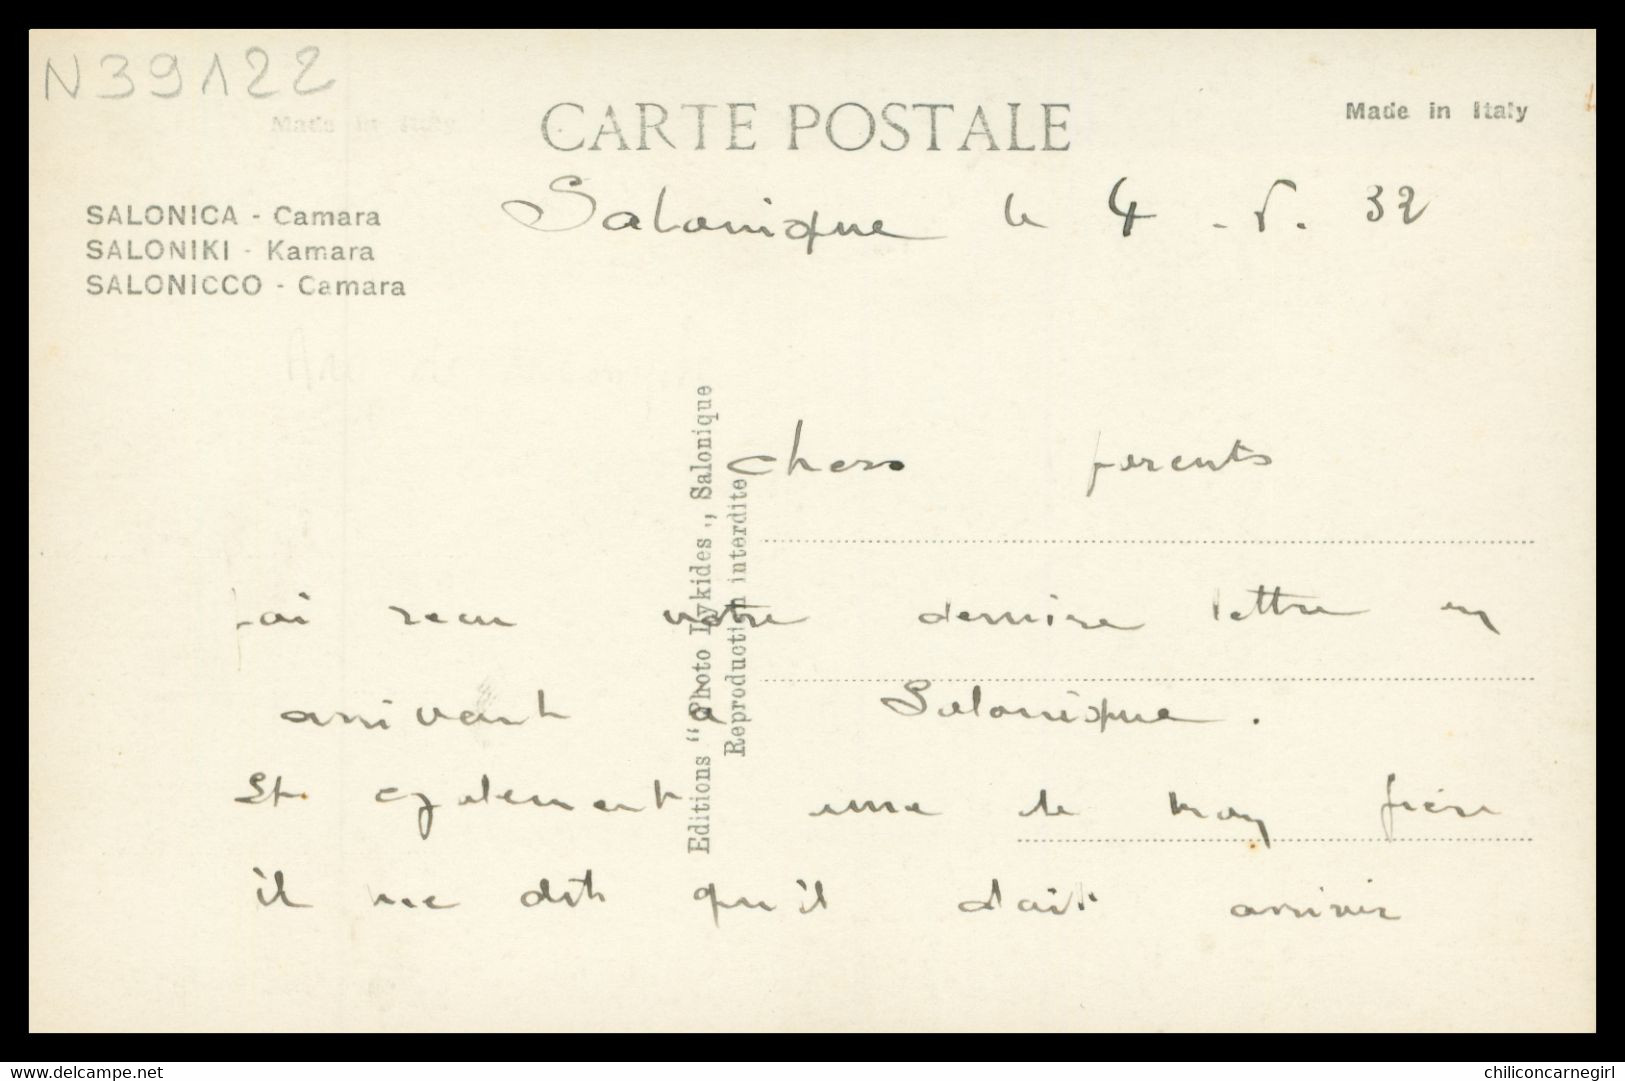 N39122
Made in Italy
CARTE POSTALE
Made in Italy
SALONICA - Camara
SALONIKI - Kamara
SALONICCO - Camara
Salonique le 4 - 5. 32
Editions "Photo Lykides", Salonique
Reproduction interdite
Chers parents
j'ai reçu votre dernière lettre en
arrivant à Salonique.
Et également une de mon frère
il me dit qu'il doit arriver
www.delcampe.net
chiliconcarnegirl